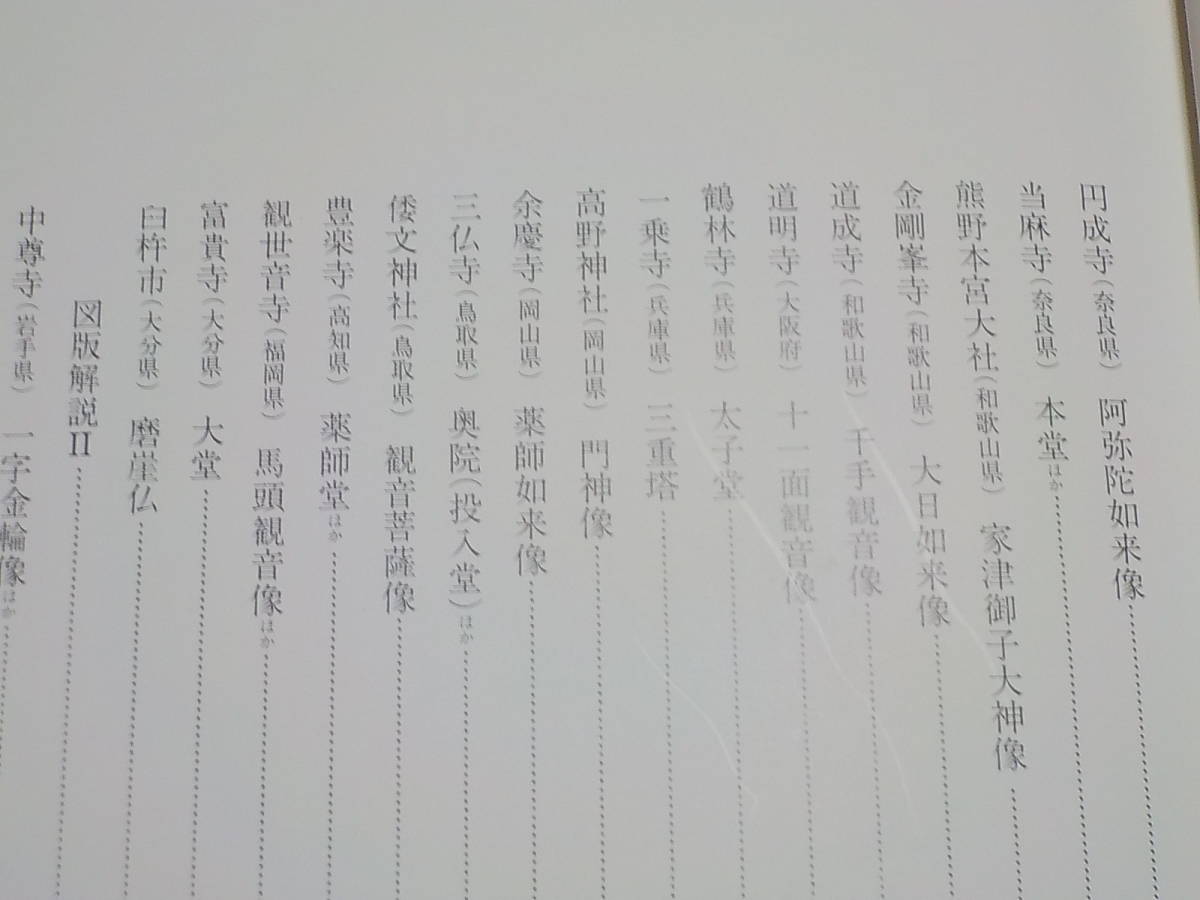 円成寺（奈良県） 阿弥陀如来像
当麻寺（奈良県） 本堂ほか
熊野本宮大社（和歌山県） 家津御子大神像
金剛峯寺（和歌山県） 大日如来像
道成寺（和歌山県） 千手観音像
道明寺（大阪府） 十一面観音像
鶴林寺（兵庫県） 太子堂
一乗寺（兵庫県） 三重塔
高野神社（岡山県） 門神像
余慶寺（岡山県） 薬師如来像
三仏寺（鳥取県） 奥院（投入堂）ほか
倭文神社（鳥取県） 観音菩薩像
豊楽寺（高知県） 薬師堂ほか
観世音寺（福岡県） 馬頭観音像ほか
富貴寺（大分県） 大堂
臼杵市（大分県） 磨崖仏
図版解説II
中尊寺（岩手県） 一字金輪像ほか